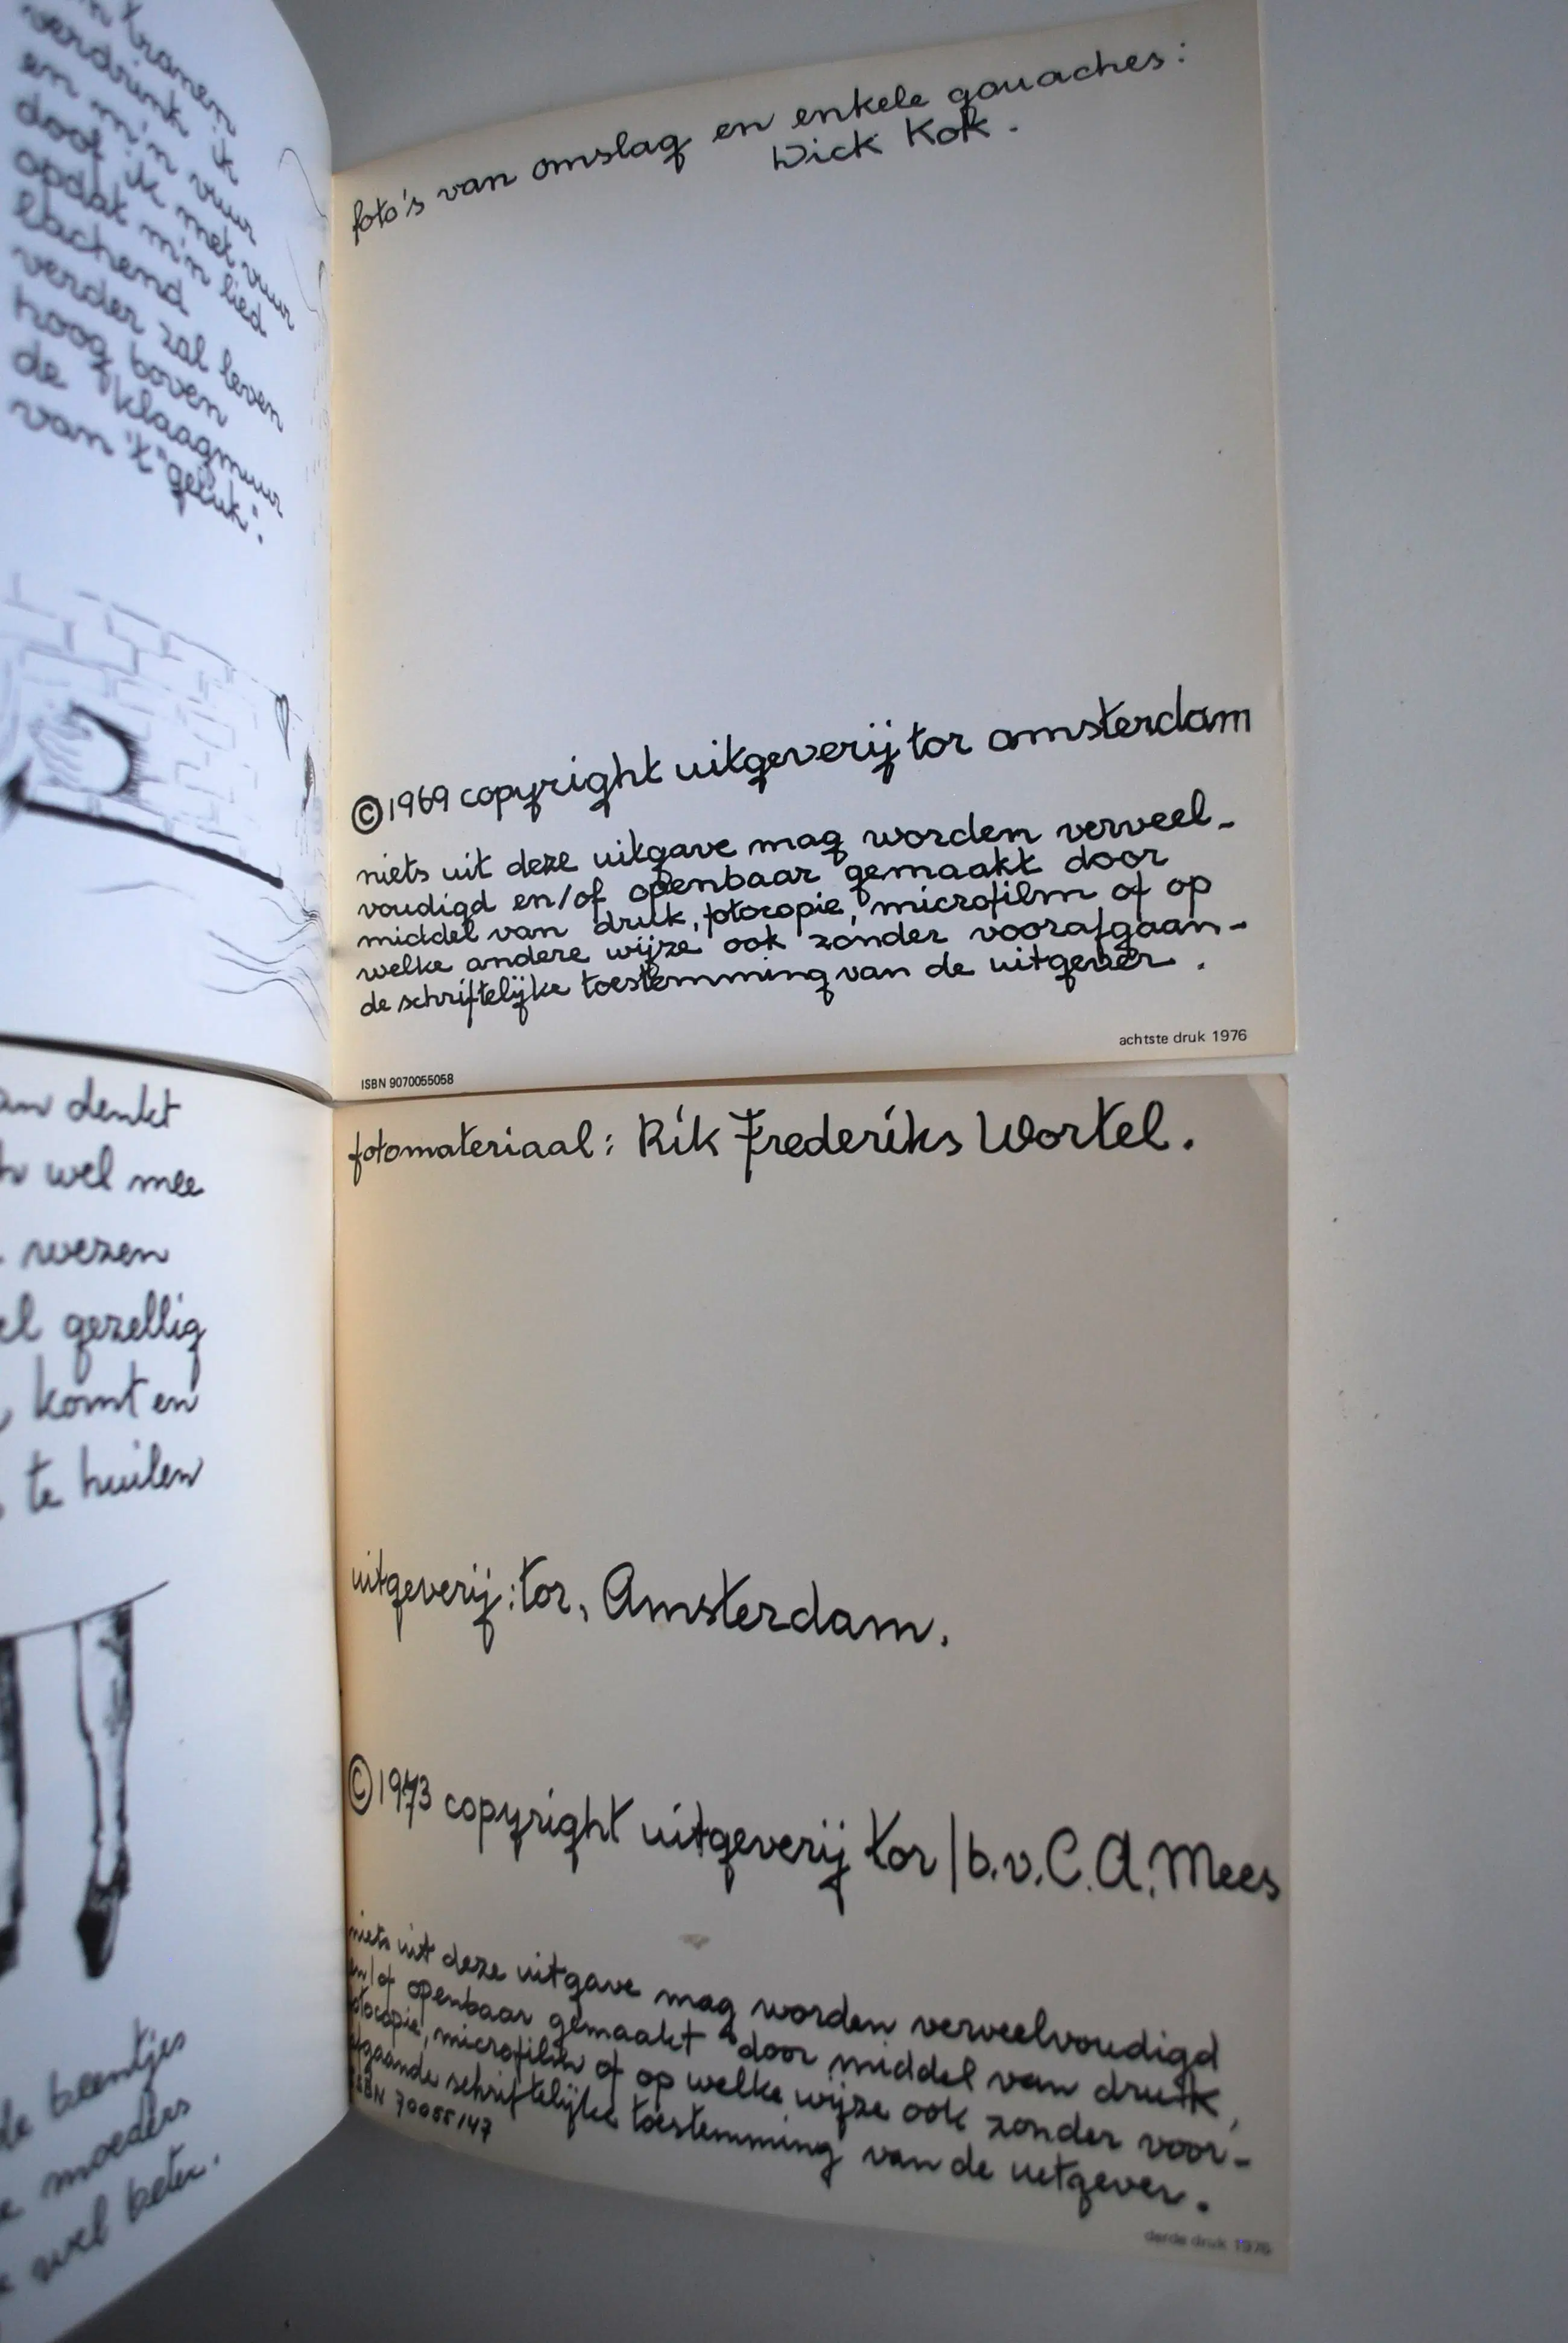 tranen
verdrink ik
en m'n vuur
doof ik met vuur
opdat m'n lied
lachend
verder zal leven
hoog boven
de "klaagmuur
van 't "geluk".
foto's van omslag en enkele gouaches:
Dick Kok.
©1969 copyright uitgeverij tor amsterdam
niets uit deze uitgave mag worden verveel-
voudigd en/of openbaar gemaakt door
middel van druk, fotocopie, microfilm of op
welke andere wijze ook zonder voorafgaan-
de schriftelijke toestemming van de uitgever.
achtste druk 1976
ISBN 9070055058
denkt
wel mee
wezen
gezellig
komt en
te huilen
beentjes
moeders
wel beter.
fotomateriaal: Rik Frederiks Wortel.
uitgeverij: tor, Amsterdam.
©1973 copyright uitgeverij tor/b.v. C.A. Mees
niets uit deze uitgave mag worden verveelvoudigd
en/of openbaar gemaakt door middel van druk,
fotocopie, microfilm of op welke wijze ook zonder voor-
afgaande schriftelijke toestemming van de uitgever.
ISBN 70055147
derde druk 1976